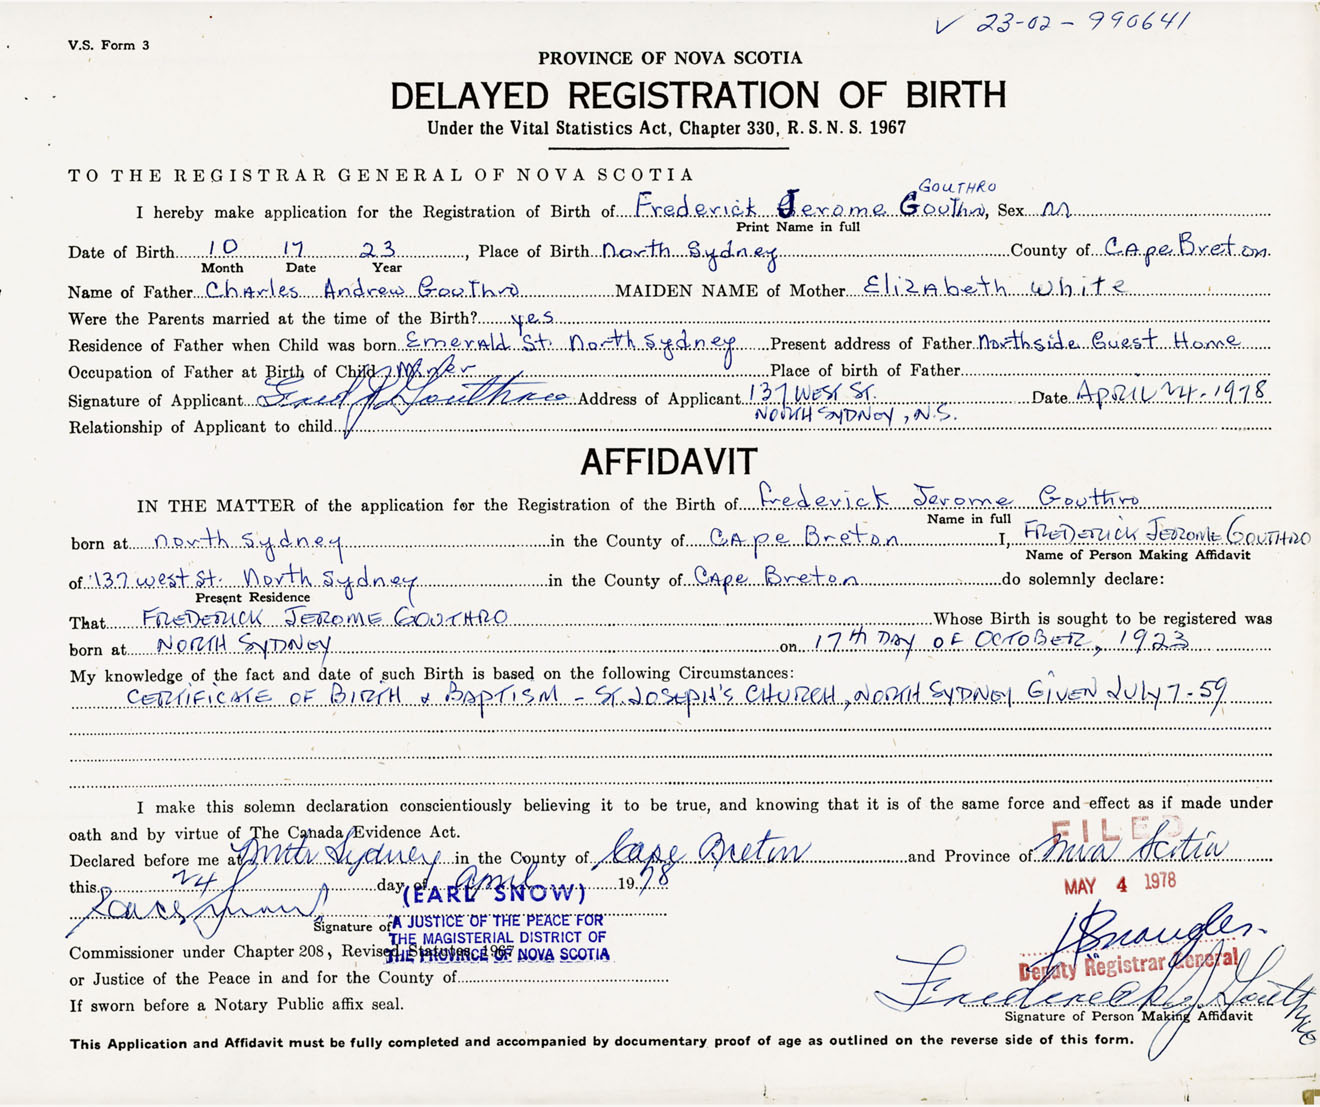 V 23-02-990641
V.S. Form 3
PROVINCE OF NOVA SCOTIA
DELAYED REGISTRATION OF BIRTH
Under the Vital Statistics Act, Chapter 330, R.S.N.S. 1967
TO THE REGISTRAR GENERAL OF NOVA SCOTIA
GOUTHRO
I hereby make application for the Registration of Birth of Frederick Jerome Gouthro, Sex M
Print Name in full
Date of Birth 10 17 23, Place of Birth North Sydney County of Cape Breton.
Month Date Year
Name of Father Charles Andrew Gouthro MAIDEN NAME of Mother Elizabeth White
Were the Parents married at the time of the Birth? yes
Residence of Father when Child was born Emerald St. North Sydney Present address of Father Northside Guest Home
Occupation of Father at Birth of Child Place of birth of Father
Signature of Applicant Fred J Gouthro Address of Applicant 137 WEST ST. Date APRIL 24. 1978
NORTH SYDNEY, N.S.
Relationship of Applicant to child
AFFIDAVIT
IN THE MATTER of the application for the Registration of the Birth of Frederick Jerome Gouthro
Name in full
born at North Sydney in the County of Cape Breton I, FREDERICK JEROME GOUTHRO
Name of Person Making Affidavit
of 137 West St. North Sydney in the County of Cape Breton do solemnly declare:
Present Residence
That FREDERICK JEROME GOUTHRO Whose Birth is sought to be registered was
born at NORTH SYDNEY on 17TH DAY OF OCTOBER, 1923
My knowledge of the fact and date of such Birth is based on the following Circumstances:
CERTIFICATE OF BIRTH & BAPTISM - ST. JOSEPH'S CHURCH, NORTH SYDNEY GIVEN JULY 7-59
I make this solemn declaration conscientiously believing it to be true, and knowing that it is of the same force and effect as if made under
oath and by virtue of The Canada Evidence Act.
FILED
Declared before me at North Sydney in the County of Cape Breton and Province of Nova Scotia
this 24 day of April 1978
MAY 4 1978
(EARL SNOW)
Signature of
A JUSTICE OF THE PEACE FOR
THE MAGISTERIAL DISTRICT OF
THE PROVINCE OF NOVA SCOTIA
Commissioner under Chapter 208, Revised Statutes, 1967
Deputy Registrar General
or Justice of the Peace in and for the County of
Frederick J. Gouthro
If sworn before a Notary Public affix seal.
Signature of Person Making Affidavit
This Application and Affidavit must be fully completed and accompanied by documentary proof of age as outlined on the reverse side of this form.